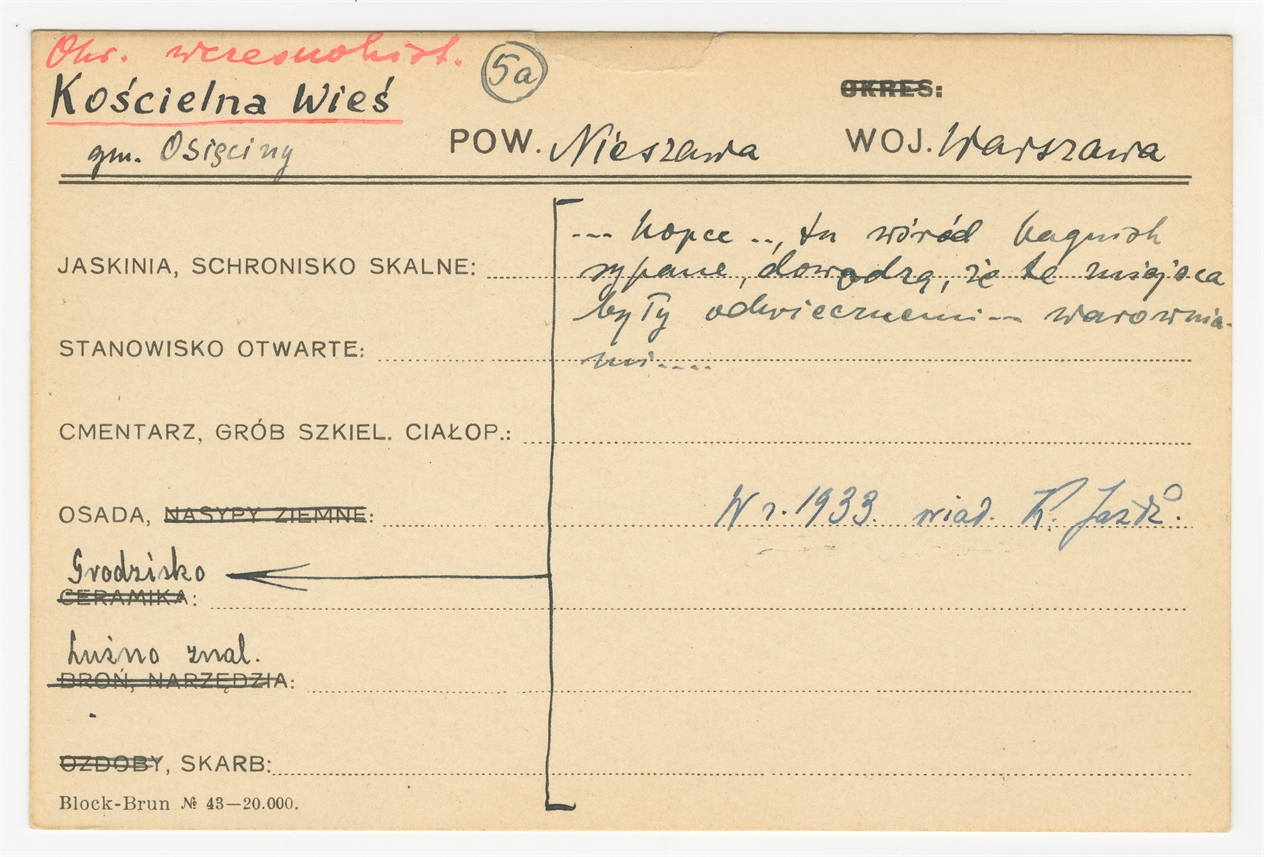 Okr. wczesnohist.
5a
Kościelna Wieś
OKRES:
gm. Osięciny
POW. Nieszawa
WOJ. Warszawa
... kopce .., tu wśród bagnisk
JASKINIA, SCHRONISKO SKALNE: sypane, dowodzą, że te miejsca
były odwiecznemi... warownia-
STANOWISKO OTWARTE: mi....
CMENTARZ, GRÓB SZKIEL. CIAŁOP.:
OSADA, NASYPY ZIEMNE: W r. 1933. wiad. K. Jażdż.
Grodzisko
CERAMIKA:
Luźno znal.
BROŃ, NARZĘDZIA:
OZDOBY, SKARB:
Block-Brun № 43—20.000.